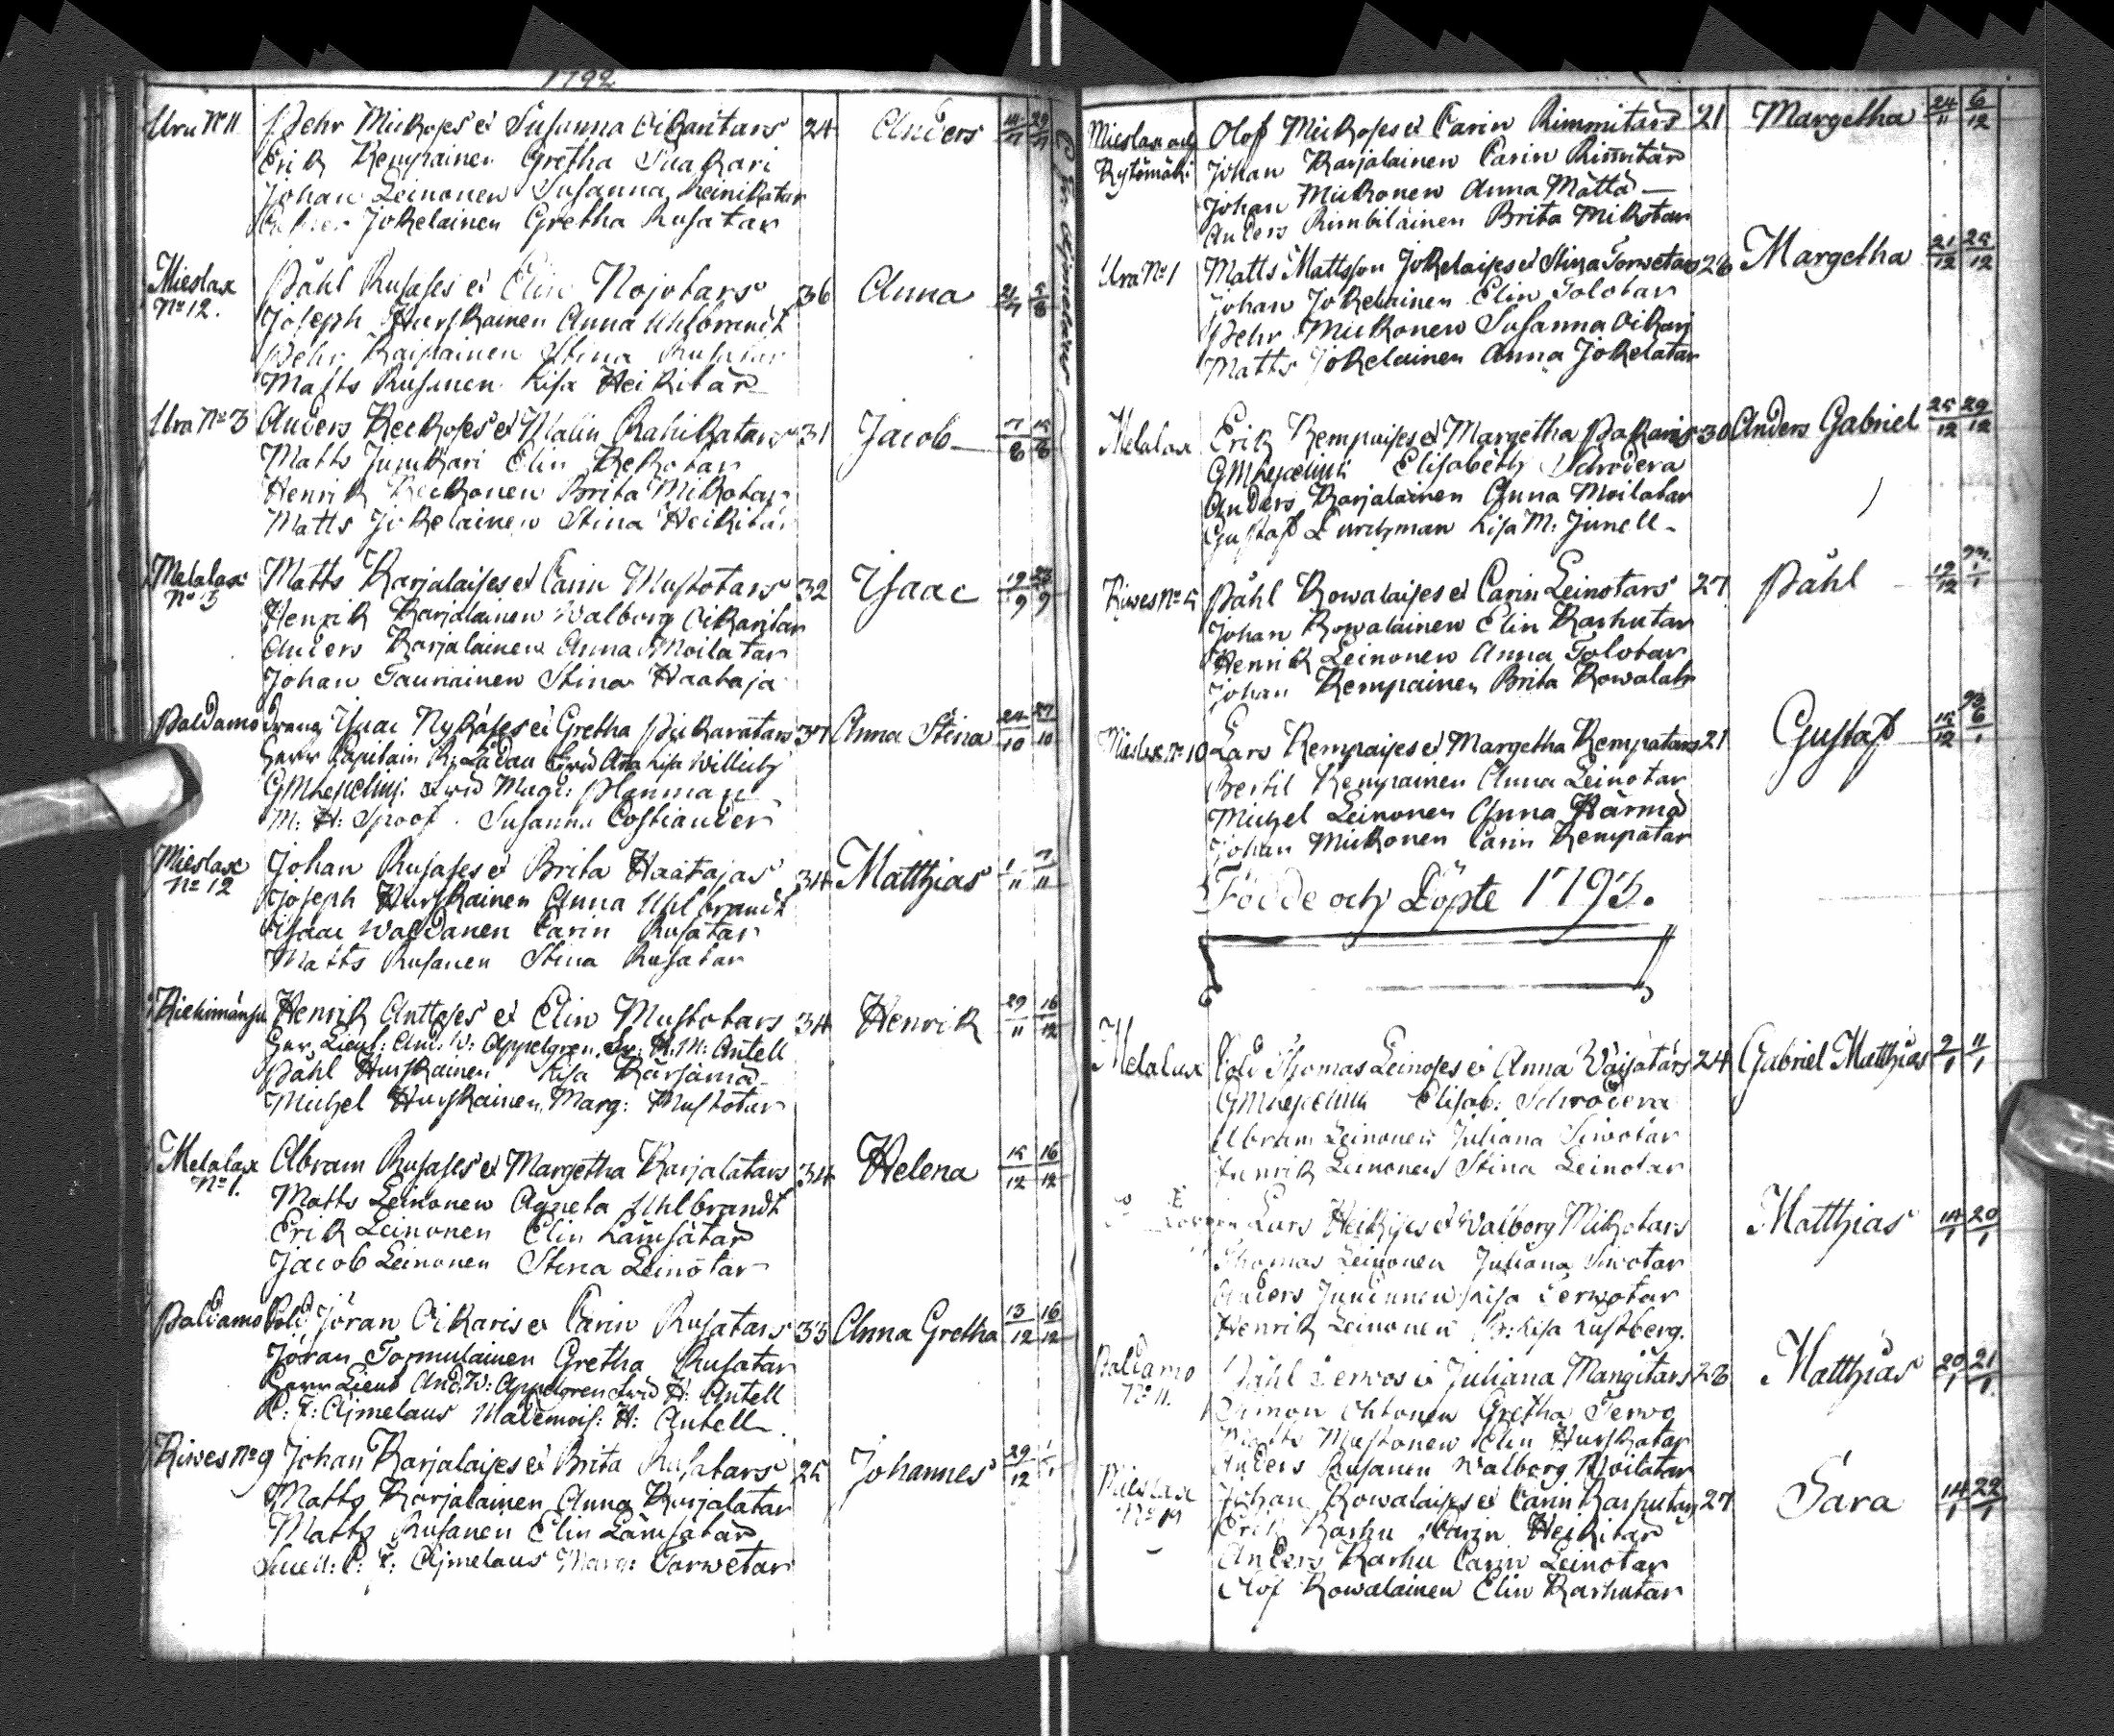 1792
Ura No 11 Pehr Mickoses et Susanna Oikaritars 24 Anders 14/7 29/7
Erik Kempainen Gretha Suakari
Johan Leinonen Susanna Reinikatar
Jokelainen Gretha Rusatar
Mieslax No 12. Påhl Rusases et Elin Nojotars 36 Anna 21/7 5/8
Joseph Hurskainen Anna Uhlbrandt
Pehr Kaipainen Stina Rusatar
Matts Rusanen Lisa Heikitär
Ura No 3 Anders Keckoses et Malin Rahikatars 31 Jacob 7/8 15/8
Matts Junkkari Elin Kekotar
Henrik Keckonen Brita Mikotar
Matts Jokelainen Stina Heikitär
Melalax No 3 Matts Karjalaises et Carin Mustotars 32 Isaac 19/9 23/9
Henrik Karjalainen Walborg Oikaritar
Anders Karjalainen Anna Moilatar
Johan Tauriainen Stina Haataja
Paldamo Dräng Isaac Nykäses et Gretha Pickarätars 37 Anna Stina 24/10 27/10
Herr Capitain R: Ladau Lisa Willicht
GMHepelius Plenman
M: H: Spoof. Susanna Costiander
Mieslax No 12 Johan Rusases et Brita Haatajas 34 Matthias 1/11 7/11
Joseph Hurskainen Anna Uhlbrandt
Isaac Waldanen Carin Rusatar
Matts Rusanen Stina Rusatar
Kiehimänsu Henrik Anttoses et Elin Mustotars 34 Henrik 29/11 16/12
Herr Lieut: And: W: Appelgren H. M: Antell
Påhl Hurskainen Lisa Kärsämä
Michel Hurskainen Marg: Mustotar
Melalax No 1. Abram Rusases et Margetha Karjalatars 34 Helena 15/12 16/12
Matts Leinonen Agneta Uhlbrandt
Erik Leinonen Elin Lämsätär
Jacob Leinonen Stina Leinotar
Paldamo Sold. Jöran Oikaris et Carin Rusatars 33 Anna Gretha 13/12 16/12
Jöran Tormulainen Gretha Rusatar
Herr Lieut And: W: Appelgren H: Antell
P: F: Ajmelaus Mademois: H: Antell
Kiwes No 9 Johan Karjalaises et Brita Rusatars 25 Johannes 29/12 1/1
Matts Karjalainen Anna Karjalatar
Matts Rusanen Elin Lämsatär
P: F: Ajmelaus Marg: Torwetar
Ajmelaeus
Mieslax och Rytömäki Olof Mickoses et Carin Kimmitärs 21 Margetha 24/11 6/12
Johan Karjalainen Carin Kimmitär
Johan Mickonen Anna Mättä
Anders Kimbiläinen Brita Mikotar
Ura No 1 Matts Mattsson Jokelaises et Stina Torwetars 26 Margetha 21/12 25/12
Johan Jokelainen Elin Tolotar
Pehr Mickonen Susanna Oikari
Matts Jokelainen Anna Jokelatar
Melalax Erik Kempaises et Margetha Pakaris 30 Anders Gabriel 25/12 29/12
GMHepelius Elisabeth Schrodera
Anders Karjalainen Anna Moilatar
Gustaf Lisa M: Junell
Kiwes No 5 Påhl Kowalaises et Carin Leinotars 27 Påhl 19/12 93. 1/1
Johan Kowalainen Elin Karhutar
Henrik Leinonen Anna Tolotar
Johan Kempainen Brita Kowalatr
Mieslax No 10 Lars Kempaises et Margetha Kempatars 21 Gustaf 15/12 93 6/1
Bertil Kempainen Anna Leinotar
Michel Leinonen Anna Härmä
Johan Mickonen Carin Kempatar
Födde och Döpte 1793.
Melalax Sold Thomas Leinoses et Anna Väisätärs 24 Gabriel Matthias 9/1 11/1
GMHepelius Elisab: Schrodera
Abram Leinonen Juliana Siwotar
Henrik Leinonen Stina Leinotar
Lars Heikises et Walborg Mikotars Matthias 14/1 20/1
Thomas Leinonen Juliana Siwotar
Anders Juntunnen Lisa Terwotar
Henrik Leinonen Lisa Lustberg.
Paldamo No 11. Påhl Terwos et Juliana Mangitars 28 Matthias 20/1 21/1
Simon Ohtonen Gretha Terwo
Matts Mustonen Elin Hurskatar
Anders Rusanen Walborg Moilatar
Mieslax No 19 Johan Kowalaises et Carin Karhutars 27 Sara 14/1 22/1
Erik Karhu Carin Heikitär
Anders Karhu Carin Leinotar
Olof Kowalainen Elin Karhutar